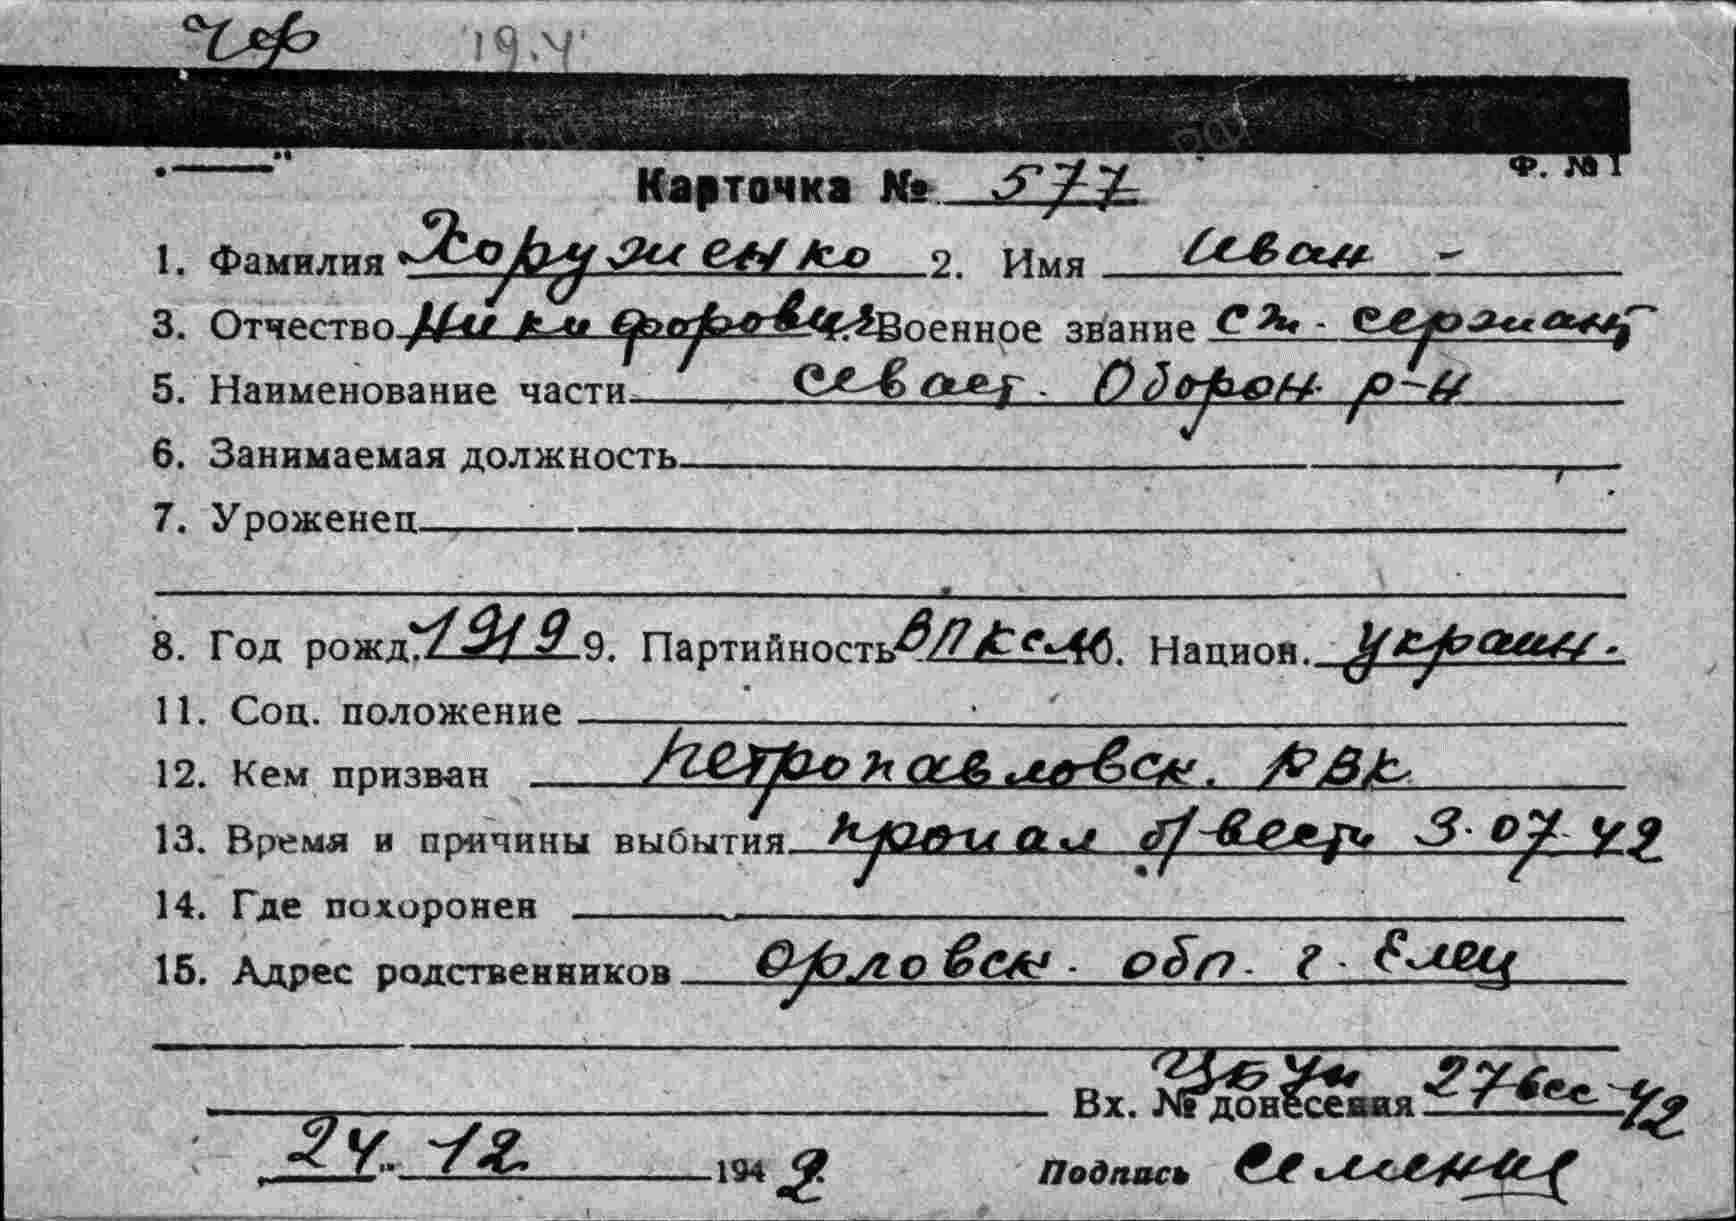 ЧФ 19.4
Ф. № 1
Карточка № 577
1. Фамилия Хоруженко 2. Имя Иван -
3. Отчество Никифорович 4. Военное звание ст. сержант
5. Наименование части Севаст. Оборон. р-н
6. Занимаемая должность
7. Уроженец
8. Год рожд. 1919 9. Партийность ВЛКСМ 10. Национ. украин.
11. Соц. положение
12. Кем призван Петропавловск. РВК
13. Время и причины выбытия пропал б/вести 3.07.42
14. Где похоронен
15. Адрес родственников Орловск. обл. г. Елец
Вх. № донесения 42
24. 12. 1942
Подпись